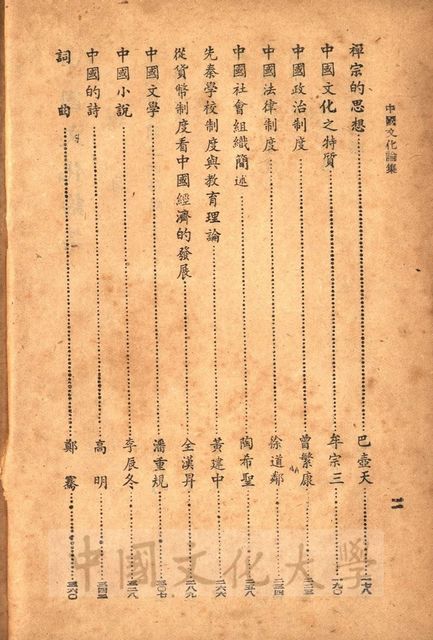 中國文化論集
禪宗的思想 巴壺天 一七八
中國文化之特質 牟宗三 一九〇
中國政治制度 曾繁康
中國法律制度 徐道鄰 二三四
中國社會組織簡述 陶希聖 二五八
先秦學校制度與教育理論 黃建中 二六六
從貨幣制度看中國經濟的發展 全漢昇 二八九
中國文學 潘重規 三〇七
中國小說 李辰冬 三二八
中國的詩 高明 三四三
詞曲 鄭騫 三六〇
二
中國文化大學